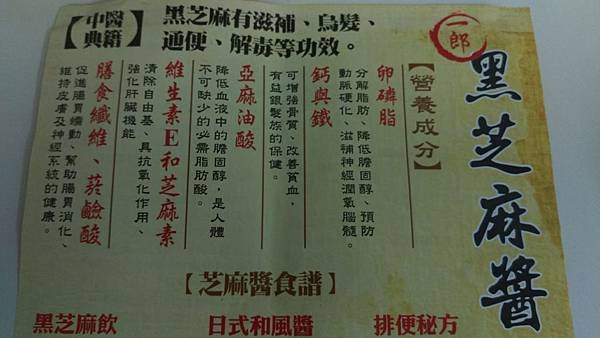 一郎
黑芝麻醬
【中醫典籍】
黑芝麻有滋補、烏髮、
通便、解毒等功效。
【營養成分】
卵磷脂
分解脂肪、降低膽固醇、預防
動脈硬化、滋補神經潤氧腦髓。
鈣與鐵
可增強骨質、改善貧血，
有益銀髮族的保健。
亞麻油酸
降低血液中的膽固醇，是人體
不可缺少的必需脂肪酸。
維生素E和芝麻素
清除自由基、具抗氧化作用、
強化肝臟機能
膳食纖維、菸鹼酸
促進腸胃蠕動、幫助腸胃消化、
維持皮膚及神經系統的健康。
【芝麻醬食譜】
黑芝麻飲
日式和風醬
排便秘方